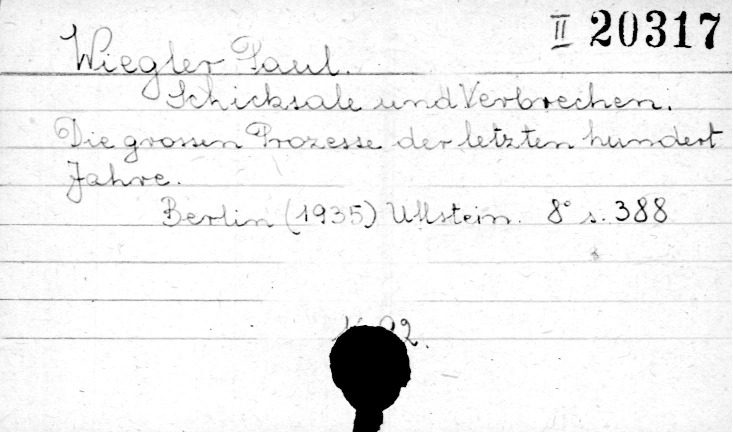 II 20317
Wiegler Paul.
Schicksale und Verbrechen.
Die grossen Prozesse der letzten hundert
Jahre.
Berlin (1935) Ullstein. 8° s. 388